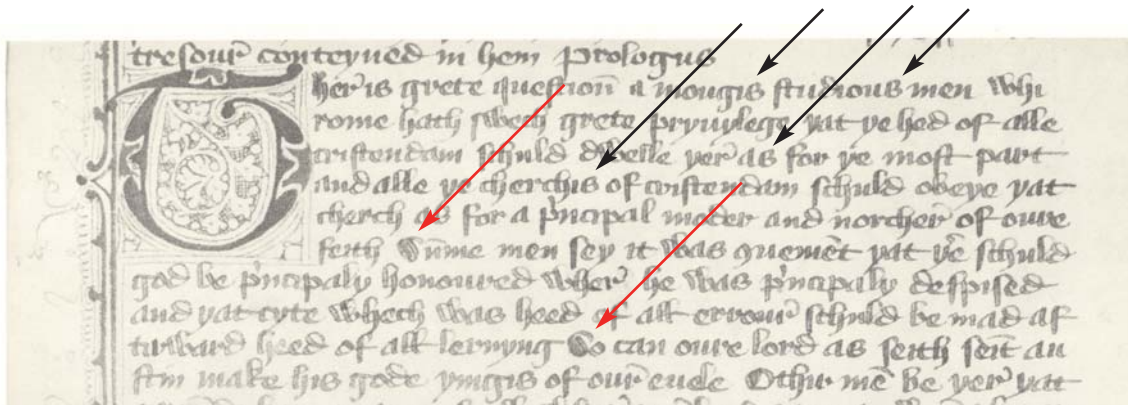 tresour̄ conteyned in hem Prologus
Ther is grete question̄ a mongis studious men whi
rome hath swech grete pryuylege yat ye hed of alle
cristendam schuld dwelle yer̄ as for ye most part
and alle ye cherchis of cristendam schuld obeye yat
cherch as for a p̄ncipal moder and norcher̄ of oure
feith Sūme men sey it was ꝯueniēt yat yer̄ schuld
god be p̄ncipaly honoured wher̄ he was p̄ncipaly despised
and yat cyte whech was heed of all errour̄ schuld be mad af
tirward heed of all lernyng So can oure lord as seith seīt au
stin make his gode yingis of our̄ euele Othir mē be yer̄ yat